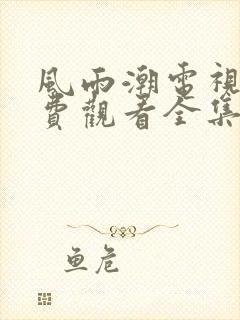 風雨潮電視
費觀看全集
鱼危